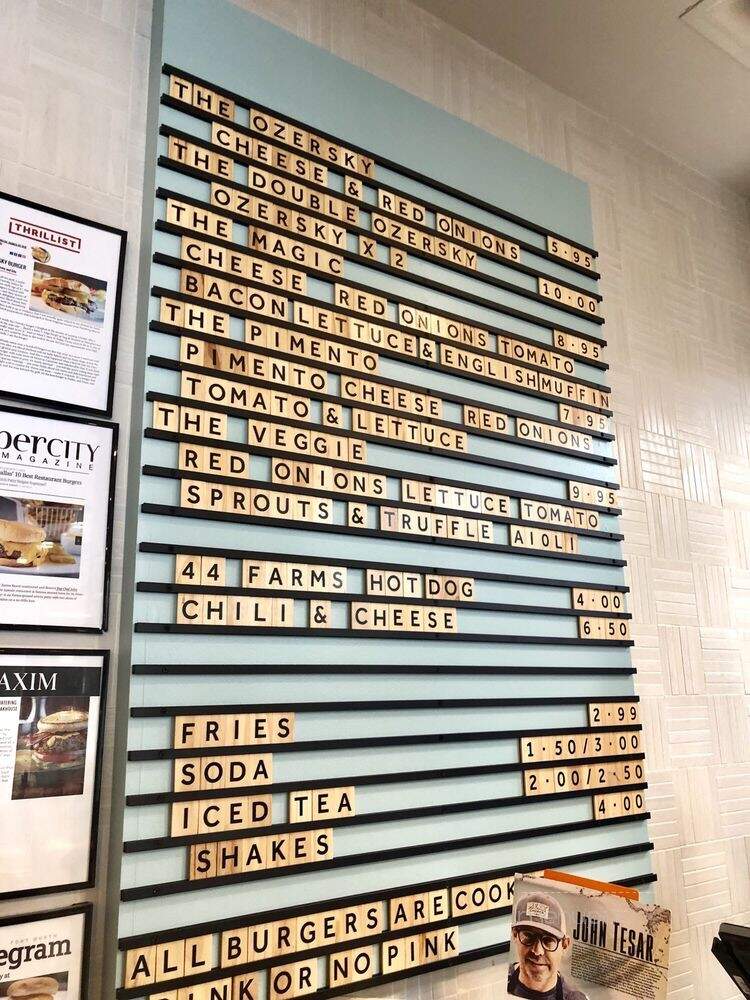 THE OZERSKY 5.95
CHEESE & RED ONIONS
THE DOUBLE OZERSKY 10.00
OZERSKY X 2
THE MAGIC 8.95
CHEESE RED ONIONS TOMATO
BACON LETTUCE & ENGLISH MUFFIN
THE PIMENTO 7.95
PIMENTO CHEESE RED ONIONS
TOMATO & LETTUCE
THE VEGGIE 9.95
RED ONIONS LETTUCE TOMATO
SPROUTS & TRUFFLE AIOLI
44 FARMS HOT DOG 4.00
CHILI & CHEESE 6.50
FRIES 2.99
SODA 1.50/3.00
ICED TEA 2.00/2.50
SHAKES 4.00
ALL BURGERS ARE COOK
INK OR NO PINK
THRILLIST
SKY BURGER
perCITY
MAGAZINE
allas' 10 Best Restaurant Burgers
AXIM
FORT WORTH
egram
JOHN TESAR